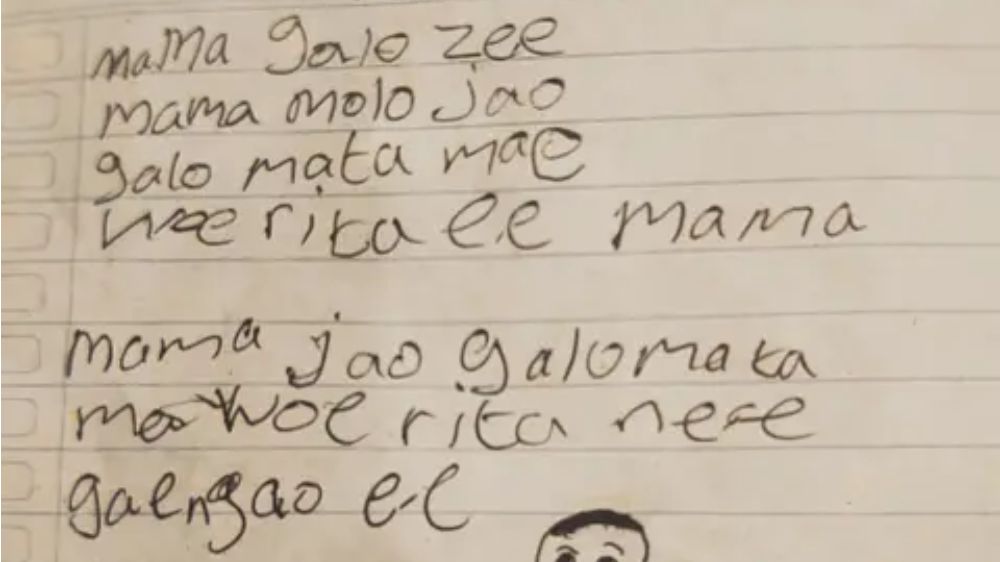 mama galo zee
mama molo jao
galo mata mae
woe rita e.e mama
mama jao galomata
woe rita ne-e
gaengao e-e